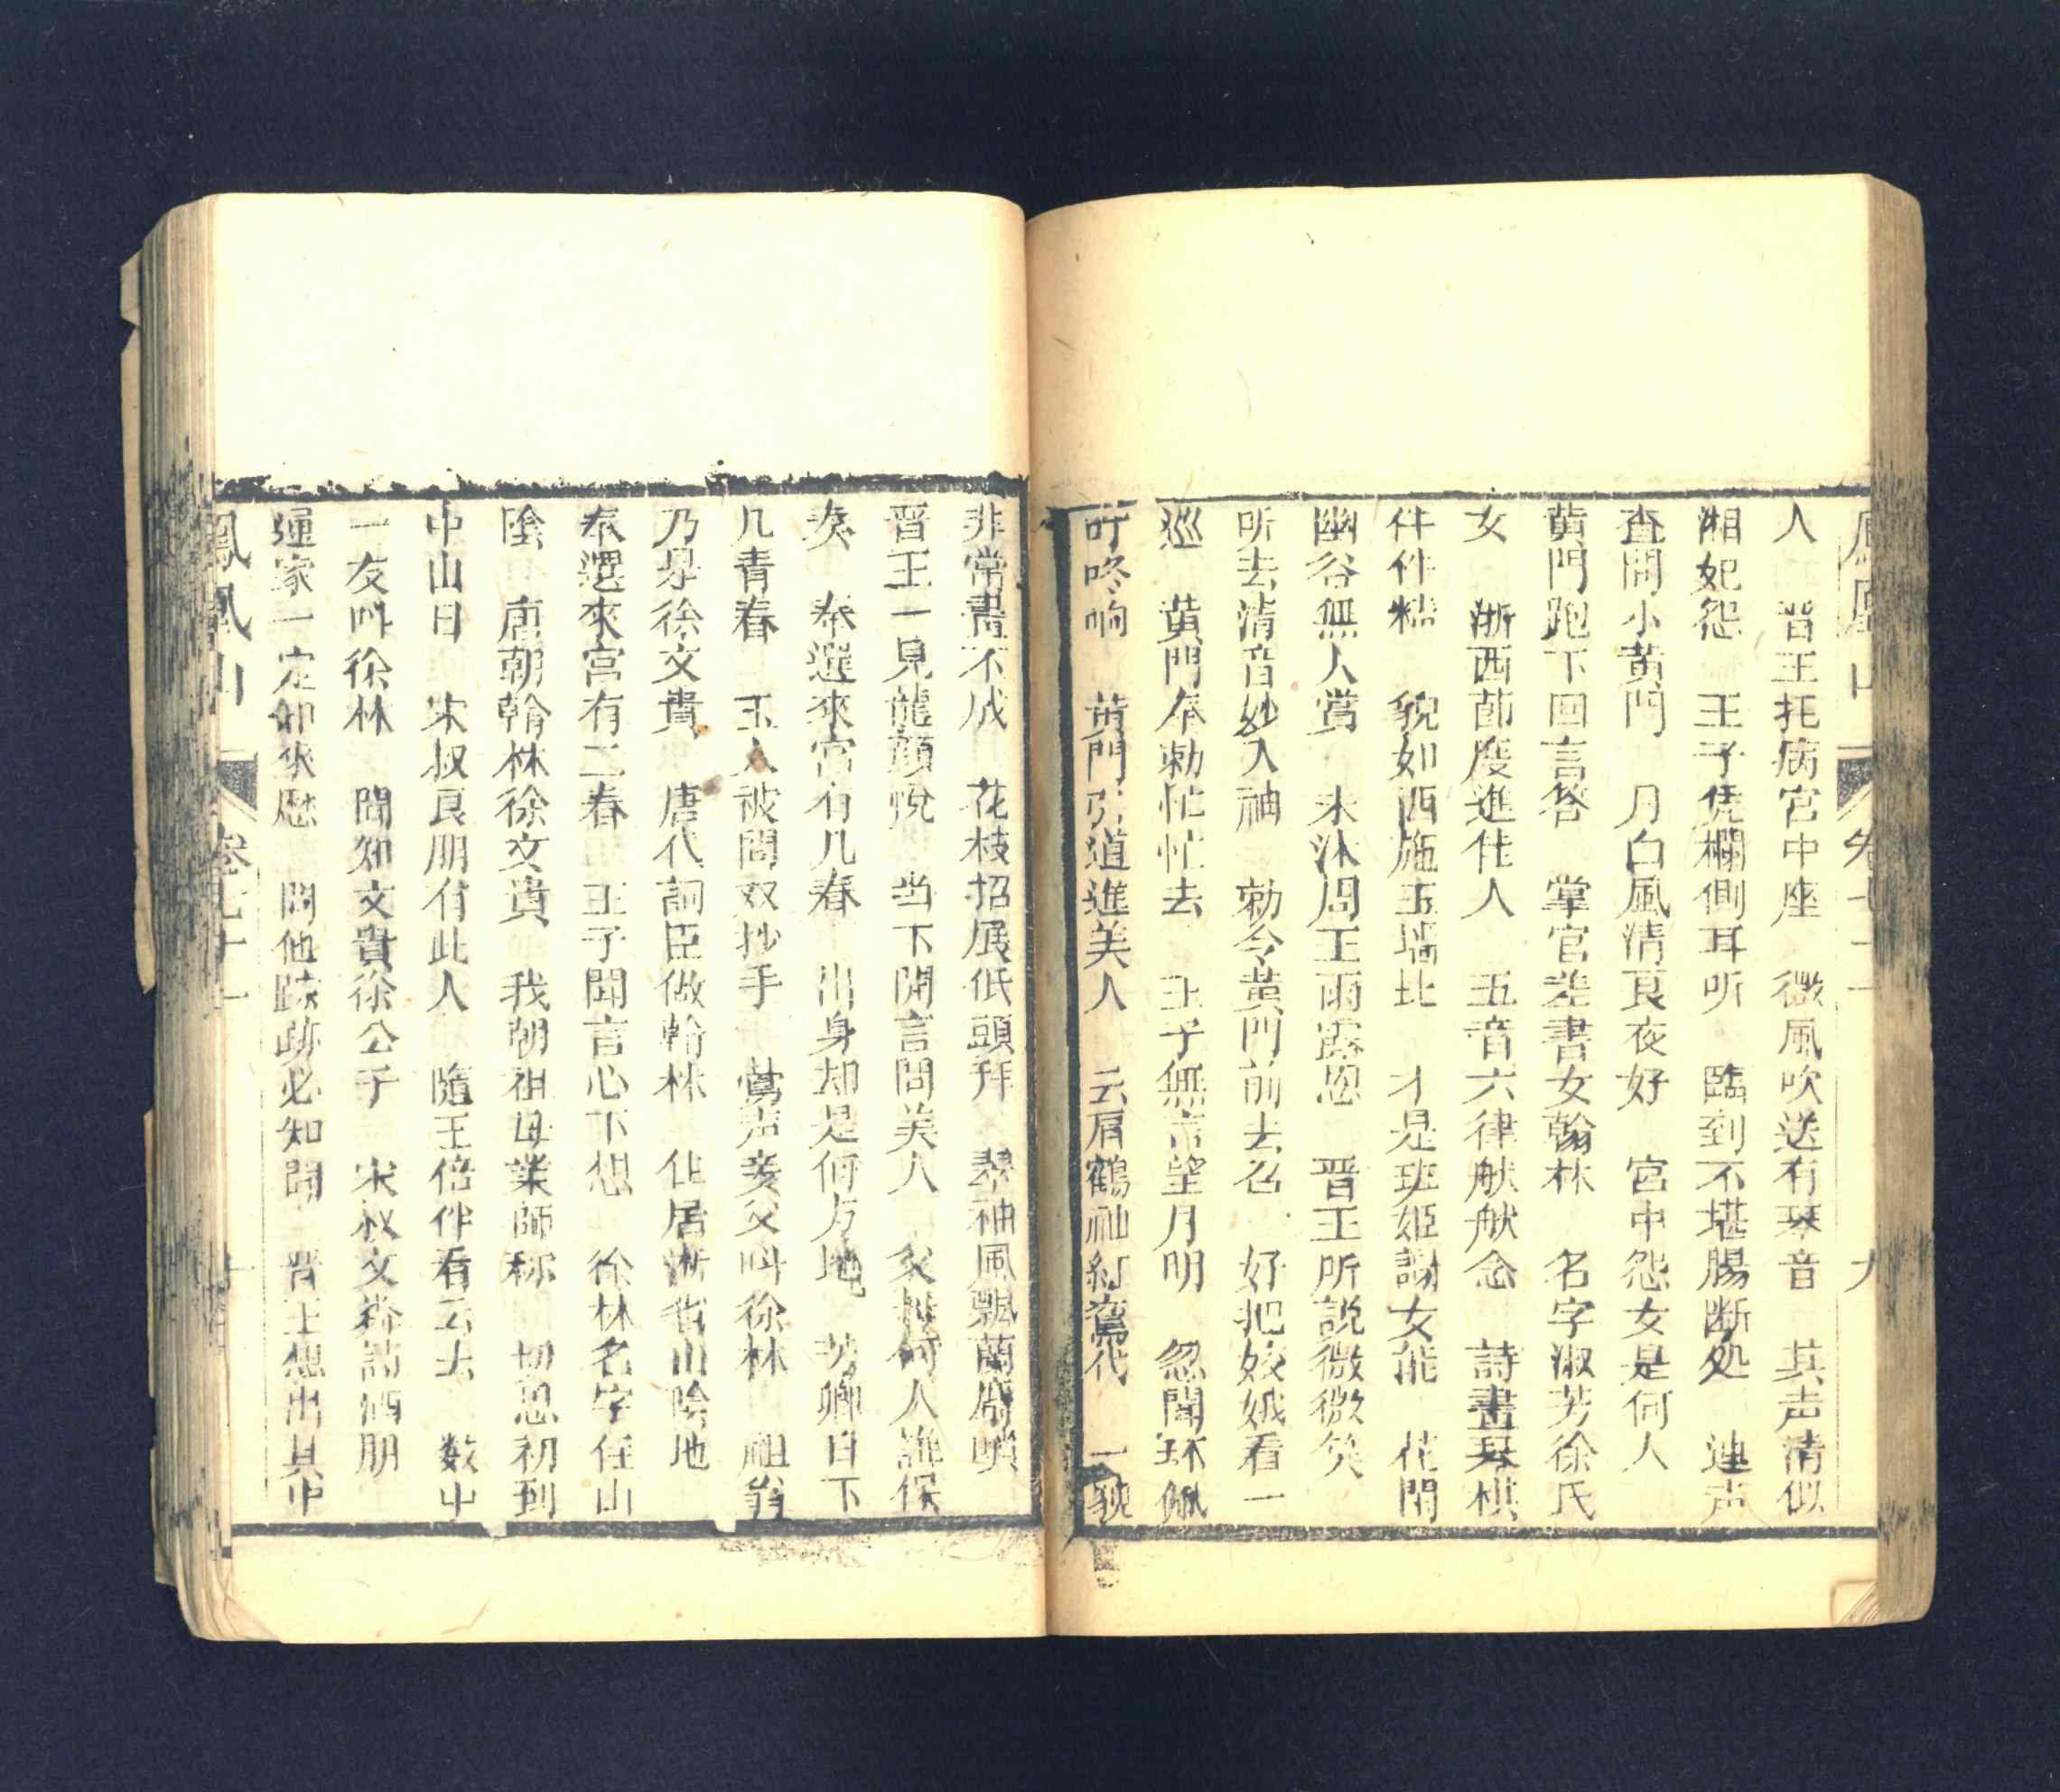 鳳凰山 卷七十一 九
人 晋王托病宫中座 微風吹送有琴音 其声清似
湘妃怨 王子凭欄側耳听 臨到不堪腸断処 連声
查問小黄門 月白風清良夜好 宮中怨女是何人
黄門跑下回言答 掌官差書女翰林 名字淑芳徐氏
女 浙西節度進佳人 五音六律般般念 詩畫琴棋
件件精 貌如西施玉墙比 才是班姬謝女能 花開
幽谷無人賞 未沐周王雨露恩 晋王所説微微笑
听去清音妙入神 勅令黄門前去召 好把姣娥看一
巡 黄門奉勅忙忙去 王子無言望月明 忽聞环佩
叮咚响 黄門引道進美人 云肩鶴袖紅鸞代 一貌
非常畫不成 花枝招展低頭拜 翠袖風飄蘭麝噴
晋王一見龍顔悅 当下開言問美人 父母何人誰保
奏 奉選來宮有几春 出身却是何方地 芳卿目下
几青春 玉人被問双抄手 鶯声妾父叫徐林 祖翁
乃是徐文貴 唐代詞臣做翰林 住居浙省山陰地
奉選來宮有二春 王子聞言心下想 徐林名字在山
陰 唐朝翰林徐文貴 我朝祖母業師称 切思初到
中山日 宋叔良朋有此人 隨王倍伴看云去 数中
一友叫徐林 問知文貴徐公子 宋叔文券詩酒朋
逥家一定卸來歷 問他踪跡必知聞 晋王想出其中
鳳凰山 卷七十一 十